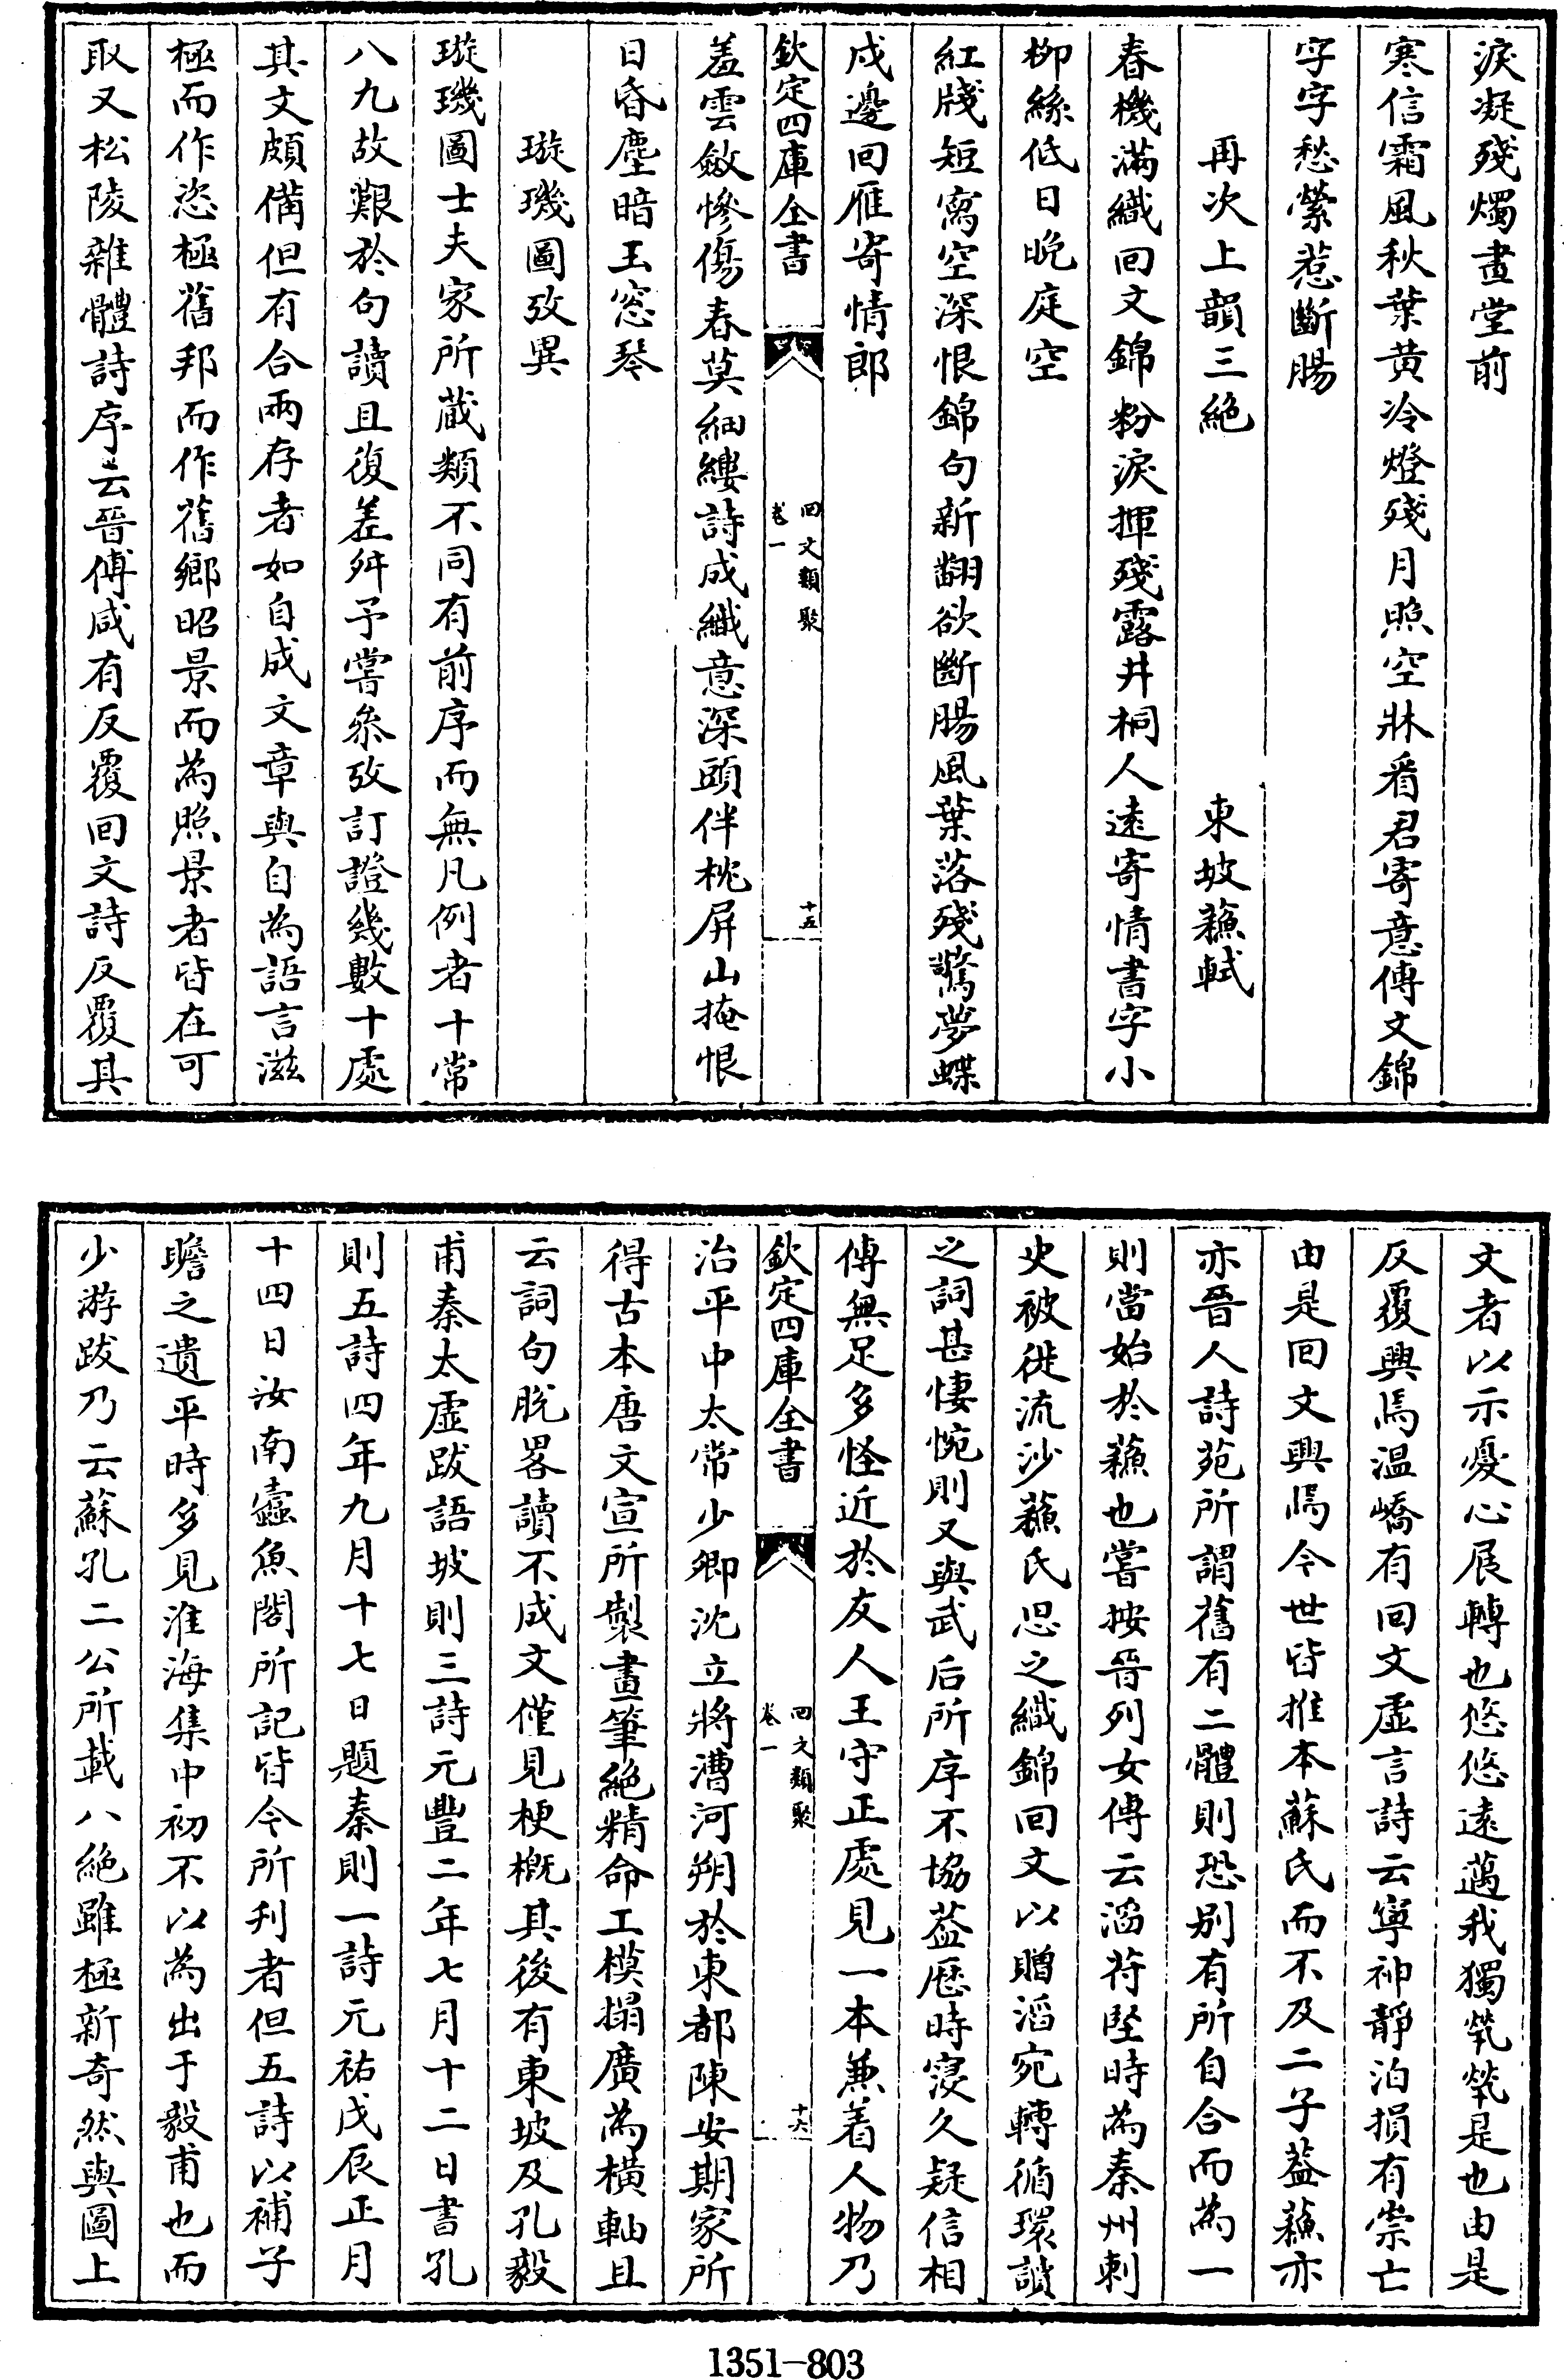 淚凝殘燭畫堂前
寒信霜風秋葉黄冷燈殘月照空牀看君寄意傳文錦
字字愁縈惹斷腸
再次上韻三絶　東坡蘓軾
春機滿織回文錦粉淚揮殘露井桐人遠寄情書字小
柳絲低日晩庭空
紅牋短寫空深恨錦句新翻欲斷腸風葉落殘驚夢蝶
戍邊回雁寄情郎
欽定四庫全書　回文類聚　卷一　十五
羞雲斂慘傷春莫細縷詩成織意深頭伴枕屏山掩恨
日昏塵暗玉窓琴
璇璣圖攷異
璇璣圖士夫家所蔵類不同有前序而無凡例者十常
八九故艱於句讀且復差舛予嘗叅攷訂證幾數十處
其文頗備但有合兩存者如自成文章與自為語言滋
極而作恣極舊邦而作舊鄉昭景而為照景者皆在可
取又松陵雜體詩序云晉傅咸有反覆回文詩反覆其
文者以示憂心展轉也悠悠遠邁我獨煢煢是也由是
反覆興焉温嶠有回文虚言詩云寜神靜泊損有崇亡
由是回文興焉今世皆推本蘇氏而不及二子葢蘓亦
亦晉人詩苑所謂舊有二體則恐别有所自合而為一
則當始於蘓也嘗按晉列女傳云滔苻堅時為秦州刺
史被徙流沙蘓氏思之織錦回文以贈滔宛轉循環讀
之詞甚悽惋則又與武后所序不協葢歴時寖久疑信相
傳無足多怪近於友人王守正處見一本兼着人物乃
欽定四庫全書　回文類聚　卷一　十六
治平中太常少卿沈立將漕河朔於東都陳安期家所
得古本唐文宣所製畫筆絶精命工模搨廣為横軸且
云詞句脱畧讀不成文僅見梗概其後有東坡及孔毅
甫秦太虚跋語坡則三詩元豐二年七月十二日書孔
則五詩四年九月十七日題秦則一詩元祐戊辰正月
十四日汝南蠧魚閣所記皆今所刋者但五詩以補子
瞻之遺平時多見淮海集中初不以為出于毅甫也而
少游跋乃云蘇孔二公所載八絶雖極新奇然與圖上
1351—803